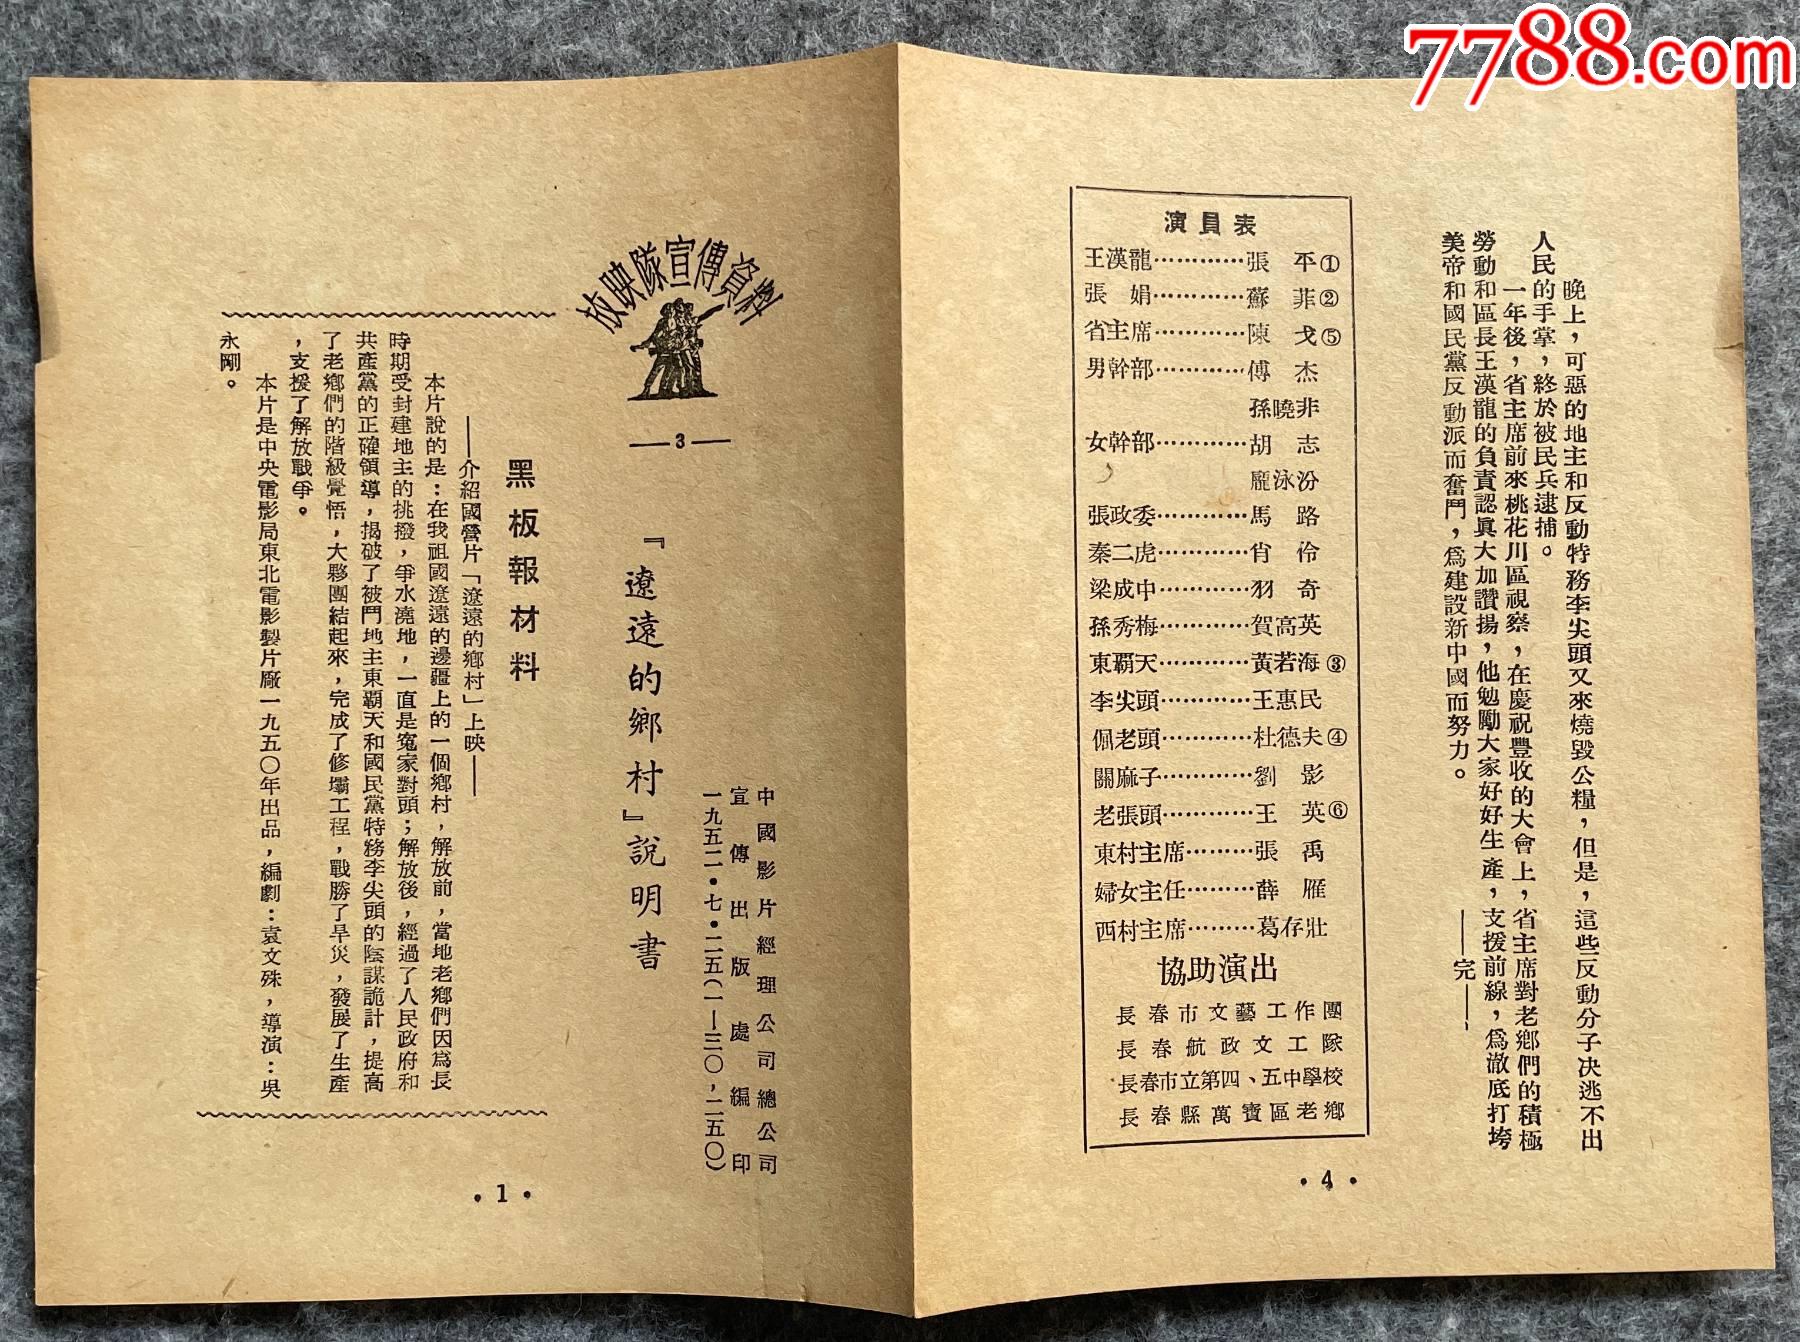 7788.com
放映隊宣傳資料
—3—
『遼遠的鄉村』說明書
中國影片經理公司總公司
宣傳出版處編印
一九五二·七·二五(一—三〇，二五〇)
黑板報材料
——介紹國營片「遼遠的鄉村」上映——
本片說的是：在我祖國遼遠的邊疆上的一個鄉村，解放前，當地老鄉們因爲長
時期受封建地主的挑撥，爭水澆地，一直是寃家對頭；解放後，經過了人民政府和
共產黨的正確領導，揭破了被鬥地主東覇天和國民黨特務李尖頭的陰謀詭計，提高
了老鄉們的階級覺悟，大夥團結起來，完成了修壩工程，戰勝了旱災，發展了生產
，支援了解放戰爭。
本片是中央電影局東北電影製片廠一九五〇年出品，編劇：袁文殊，導演：吳
永剛。
·1·
晚上，可惡的地主和反動特務李尖頭又來燒毀公糧，但是，這些反動分子决逃不出
人民的手掌，終於被民兵逮捕。
一年後，省主席前來桃花川區視察，在慶祝豐收的大會上，省主席對老鄉們的積極
勞動和區長王漢龍的負責認眞大加讚揚，他勉勵大家好好生產，支援前線，爲澈底打垮
美帝和國民黨反動派而奮鬥，爲建設新中國而努力。
——完——
演員表
王漢龍…………張　平①
張　娟…………蘇　菲②
省主席…………陳　戈⑤
男幹部…………傅　杰
孫曉非
女幹部…………胡　志
龐泳汾
張政委…………馬　路
秦二虎…………肖　伶
梁成中…………羽　奇
孫秀梅…………賀高英
東覇天…………黃若海③
李尖頭…………王惠民
倔老頭…………杜德夫④
關麻子…………劉　影
老張頭…………王　英⑥
東村主席………張　禹
婦女主任………薛　雁
西村主席………葛存壯
協助演出
長春市文藝工作團
長春航政文工隊
長春市立第四、五中學校
長春縣萬寶區老鄉
·4·